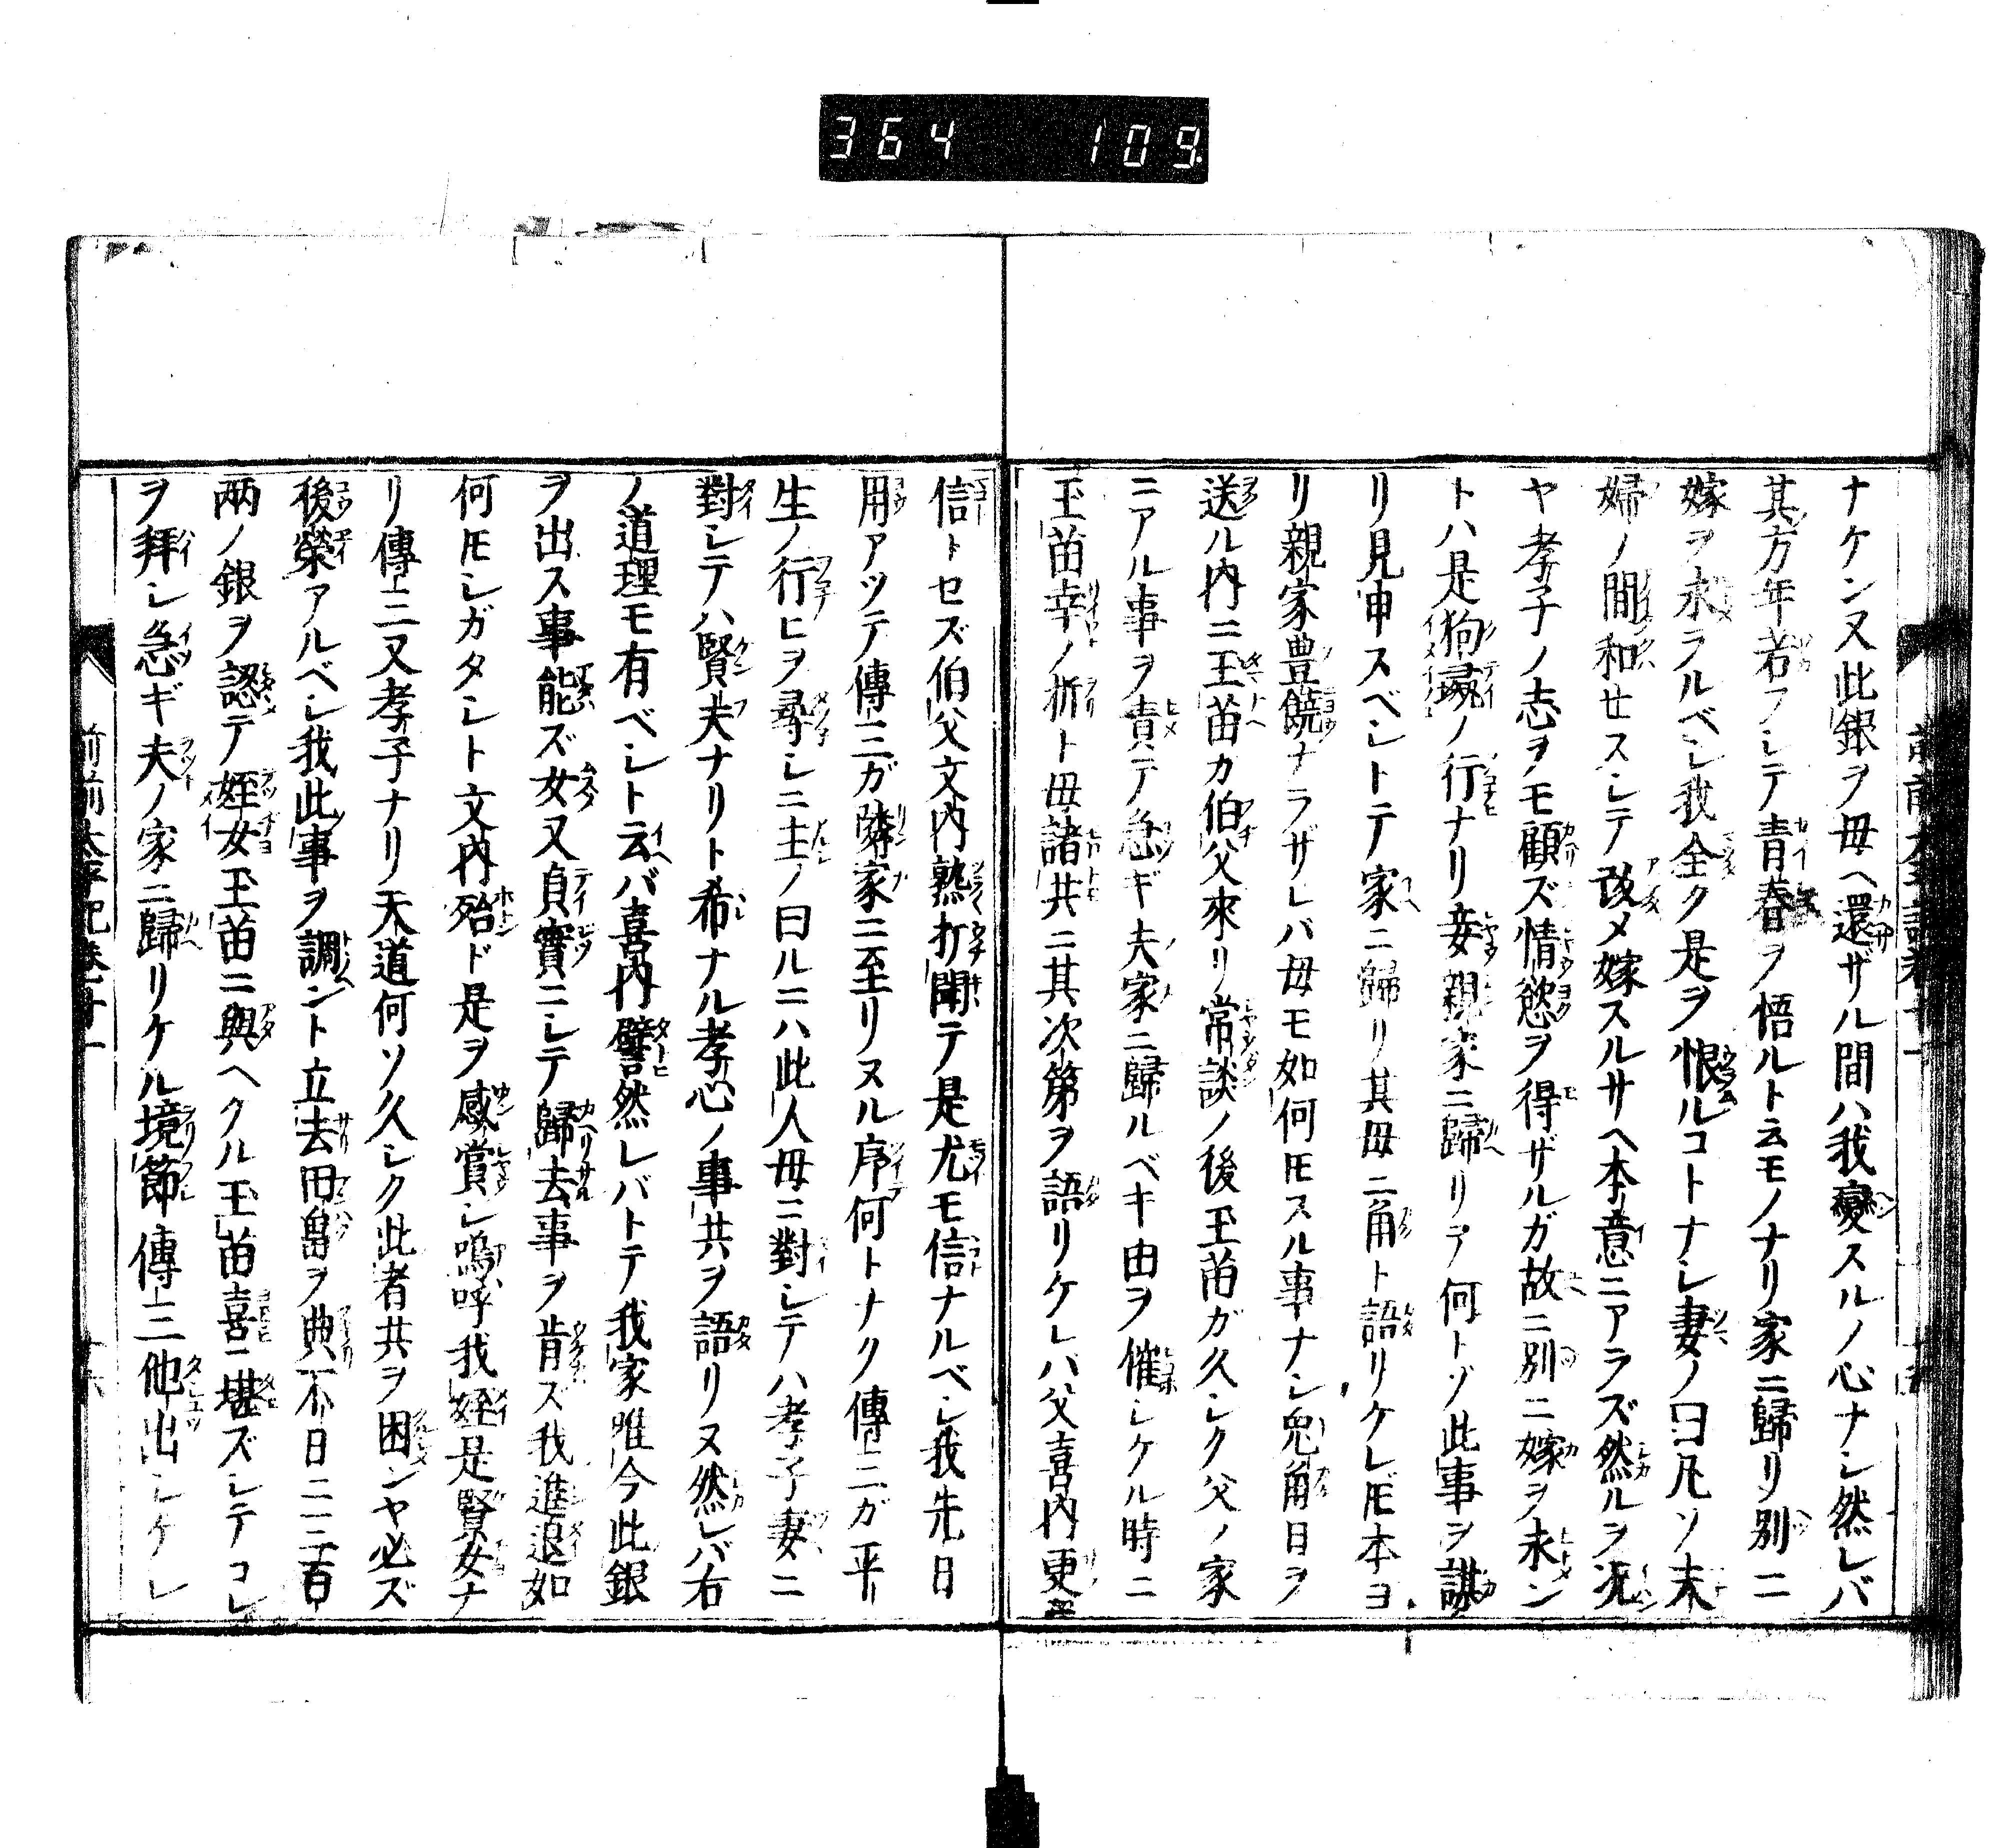 364 109
ナケン又此銀ヲ母ヘ還ザル間ハ我變スルノ心ナシ然レバ
其方年若フシテ青春ヲ悟ルト云モノナリ家ニ歸リ別ニ
嫁ヲ求ラルベシ我全ク是ヲ恨ルコトナシ妻ノ曰凡ソ夫
婦ノ間和せスシテ改メ嫁スルサヘ本意ニアラズ然ルヲ況
ヤ孝子ノ志ヲモ顧ズ情慾ヲ得ザルガ故ニ別ニ嫁ヲ求ン
トハ是狗彘ノ行ナリ妾親家ニ歸リテ何トゾ此事ヲ謀
リ見申スベシトテ家ニ歸リ其母ニ角ト語リケレ𪜈本ヨ
リ親家豊饒ナラザレバ母モ如何𪜈スル事ナシ兎角日ヲ
送ル内ニ玉苗カ伯父來リ常談ノ後玉苗ガ久シク父ノ家
ニアル事ヲ責テ急ギ夫家ニ歸ルベキ由ヲ催シケル時ニ
玉苗幸ノ折ト母諸共ニ其次第ヲ語リケレバ父喜内更ニ
信トセズ伯父文内熟打聞テ是尤モ信ナルベシ我先日
用アツテ傳三ガ隣家ニ至リヌル序何トナク傳三ガ平
生ノ行ヒヲ尋シニ主ノ曰ルニハ此人母ニ對シテハ孝子妻ニ
對シテハ賢夫ナリト希ナル孝心ノ事共ヲ語リヌ然レバ右
ノ道理モ有ベシト云バ喜内譬然レバトテ我家唯今此銀
ヲ出ス事能ズ女又貞實ニシテ歸去事ヲ肯ズ我進退如
何𪜈シガタシト文内殆ド是ヲ感賞シ嗚呼我姪是賢女ナ
リ傳三又孝子ナリ天道何ソ久シク此者共ヲ困ンヤ必ズ
後榮アルベシ我此事ヲ調ント立去田畠ヲ典不日ニ二百
兩ノ銀ヲ認テ姪女玉苗ニ與ヘクル玉苗喜ニ堪ズシテコレ
ヲ拜シ急ギ夫ノ家ニ歸リケル境節傳三他出シケレ
前前太平記卷廿一